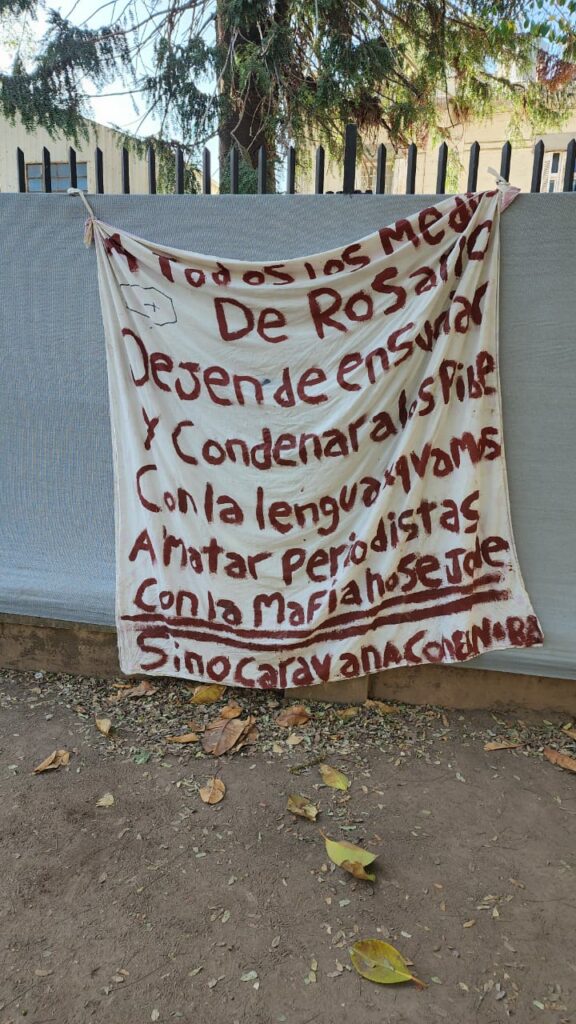 A Todos los Medi
De RoSario
Dejen de ensuciar
y Condenar a los Pibe
Con la lengua xq vamos
A Matar periodistas
Con la Mafia no Se Jode
Sino caravana